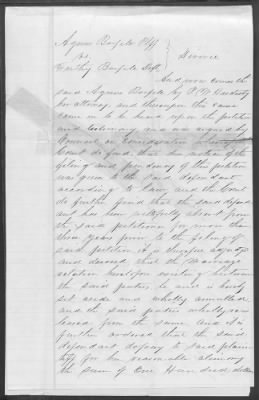 Agnes Barfels Plff
vs.
Worthy Barfels Deft.
Divorce
And now comes the
said Agnes Barfels by P. W. Hardesty
her attorney and thereupon this cause
came on to be heard upon the petition
and testimony and was argued by
Counsel on Consideration whereof the
Court do find that due notice of the
filing and pendency of this petition
was given to the said defendant
according to law, and the Court
do further find that the said defend
ant has been willfully absent from
the said petitioner for more than
three years prior to the filing of
said petition. It is therefore adjudged
and decreed that the Marriage
relation heretofore existing between
the said parties be and is hereby
set aside and wholly annulled
and the said parties wholly re
leased from the same and it is
further ordered that the said
defendant do pay to said plain
tiff for her reasonable alimony
the sum of One Hundred dollars